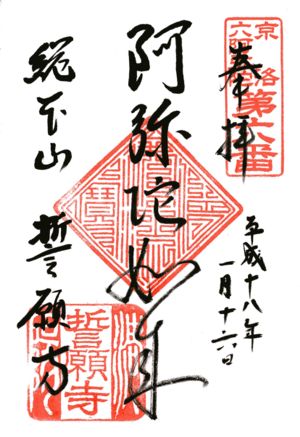 京洛
六阿弥陀
第六番
奉拝
平成十八年
一月十六日
阿弥陀如来
総本山 誓願寺
誓願寺